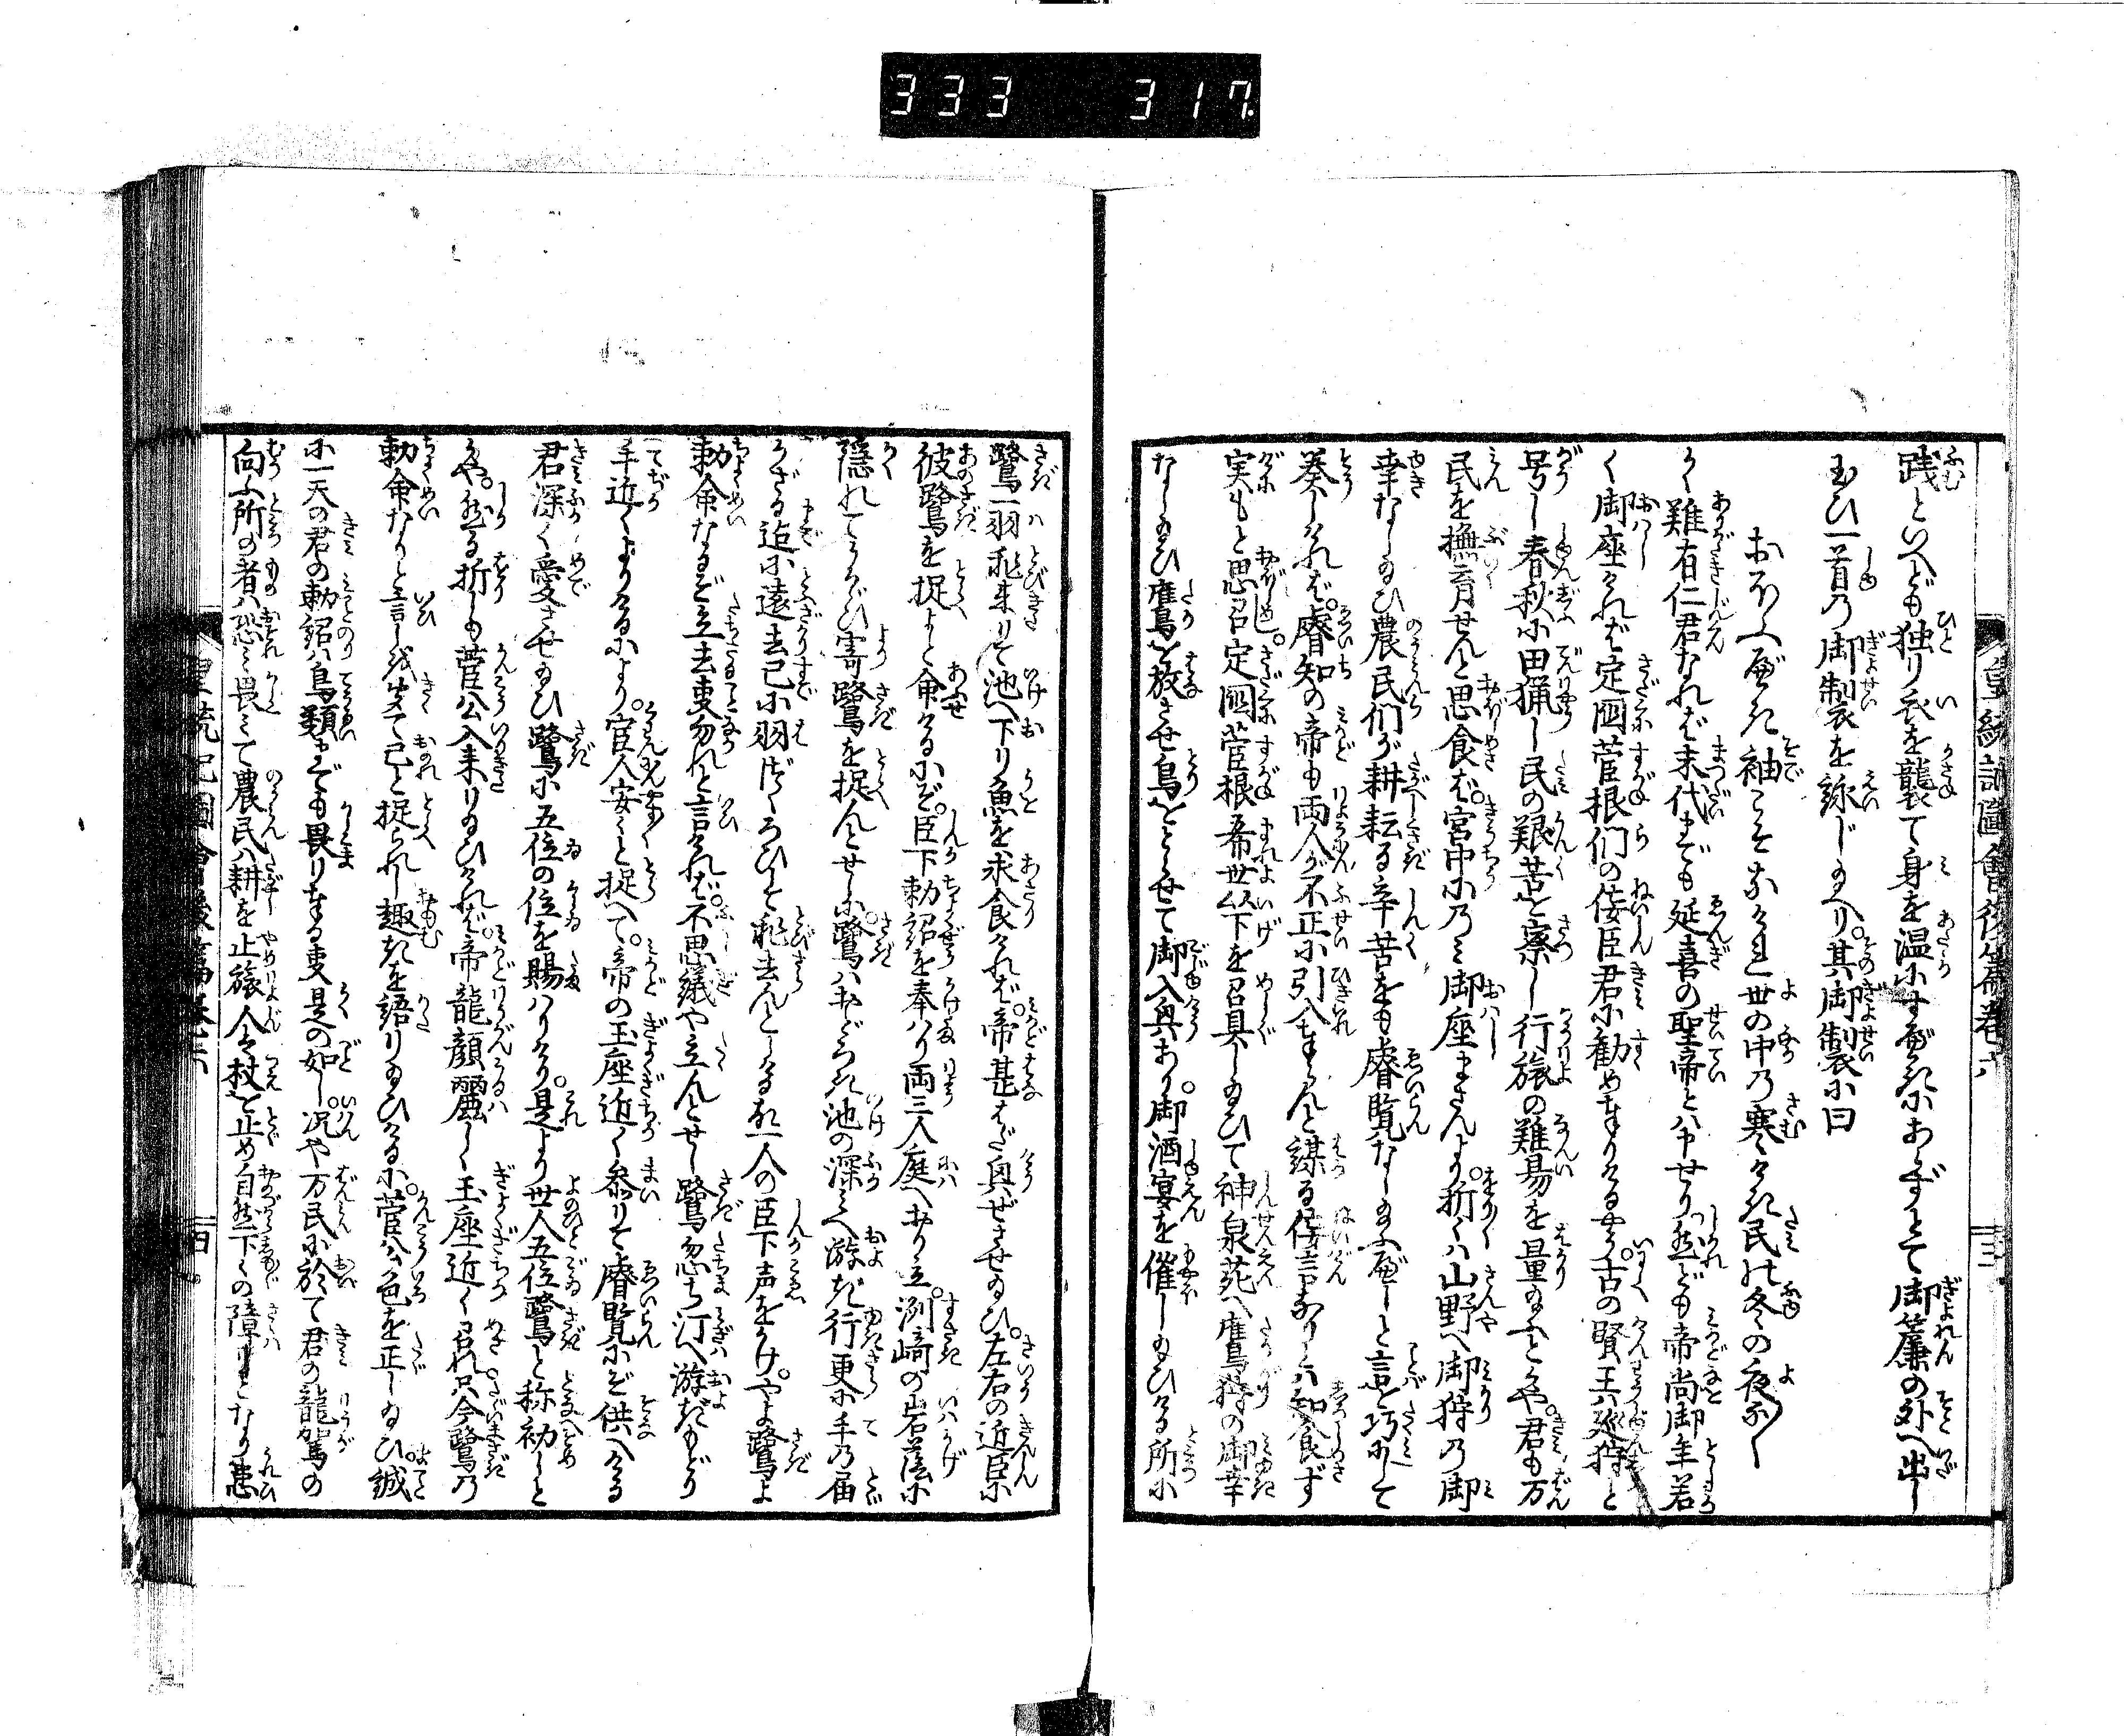 333 317
践といへども独り衣を襲て身を温にすべきにあらずとて御簾の外へ出し
玉ひ一首の御製を詠じ給へり。其御製に曰
おほふべき袖こそなけれ世の中の寒けき民の冬の夜な〳〵
く難有仁君なれば末代までも延喜の聖帝とハ申せり然ども帝尚御年若
く御座ければ定国菅根们の佞臣君に勧め奉りけるやう。古の賢王ハ巡狩と
号し春秋に田猟し民の艱苦を察し行旅の難易を量給ふとかや。君も万
民を撫育せんと思食ば。宮中にのミ御座まさんより。折々ハ山野へ御狩の御
幸なし給ひ農民们が耕耘る辛苦をも睿覧なし給ふべしと言を巧にして
奏しければ。睿知の帝も両人が不正に引入奉らんと謀る佞言なりとハ知食ず
実もと思召定国菅根希世以下を召具し給ひて神泉苑へ鷹狩の御幸
なし給ひ鷹を放させ鳥をとらせて御入興あり。御酒宴を催し給ひける所に
鷺一羽飛来りて池へ下り魚を求食ければ。帝甚はだ興ぜさせ給ひ。左右の近臣に
彼鷺を捉よと命けるにぞ。臣下勅詔を奉ハり両三人庭へおり立。洲崎の岩蔭に
隠れてうかゞひ寄鷺を捉んとせしに。鷺ハおどろき池の深ミへ游ぎ行更に手の届
かざる迄に遠去已に羽づくろひして飛去んとしける故一人の臣下声をかけ。やよ鷺よ
勅命なるぞ立去事勿れと言ければ。不思議や立んとせし鷺忽ち汀へ游ぎもどり
手近くよりけるにより。官人安々と捉へて。帝の玉座近く参りて睿覧にぞ供へける
君深く愛させ給ひ鷺に五位の位を賜ハりけり。是より世人五位鷺と称初しと
かや。然る折しも菅公入来り給ひければ。帝龍顔麗しく玉座近く召れ。只今鷺の
勅命なりと言しを聞て己と捉られし趣きを語り給ひけるに。菅公色を正し給ひ。誠
に一天の君の勅詔ハ鳥類までも畏り奉る事是の如し。况や万民に於て君の龍駕の
向ふ所の者ハ恐ミ畏ミて農民ハ耕を止旅人ハ杖を止め自然下々の障りとなり患
皇統記図会後篇巻六 三
皇統記図会後篇巻六 四